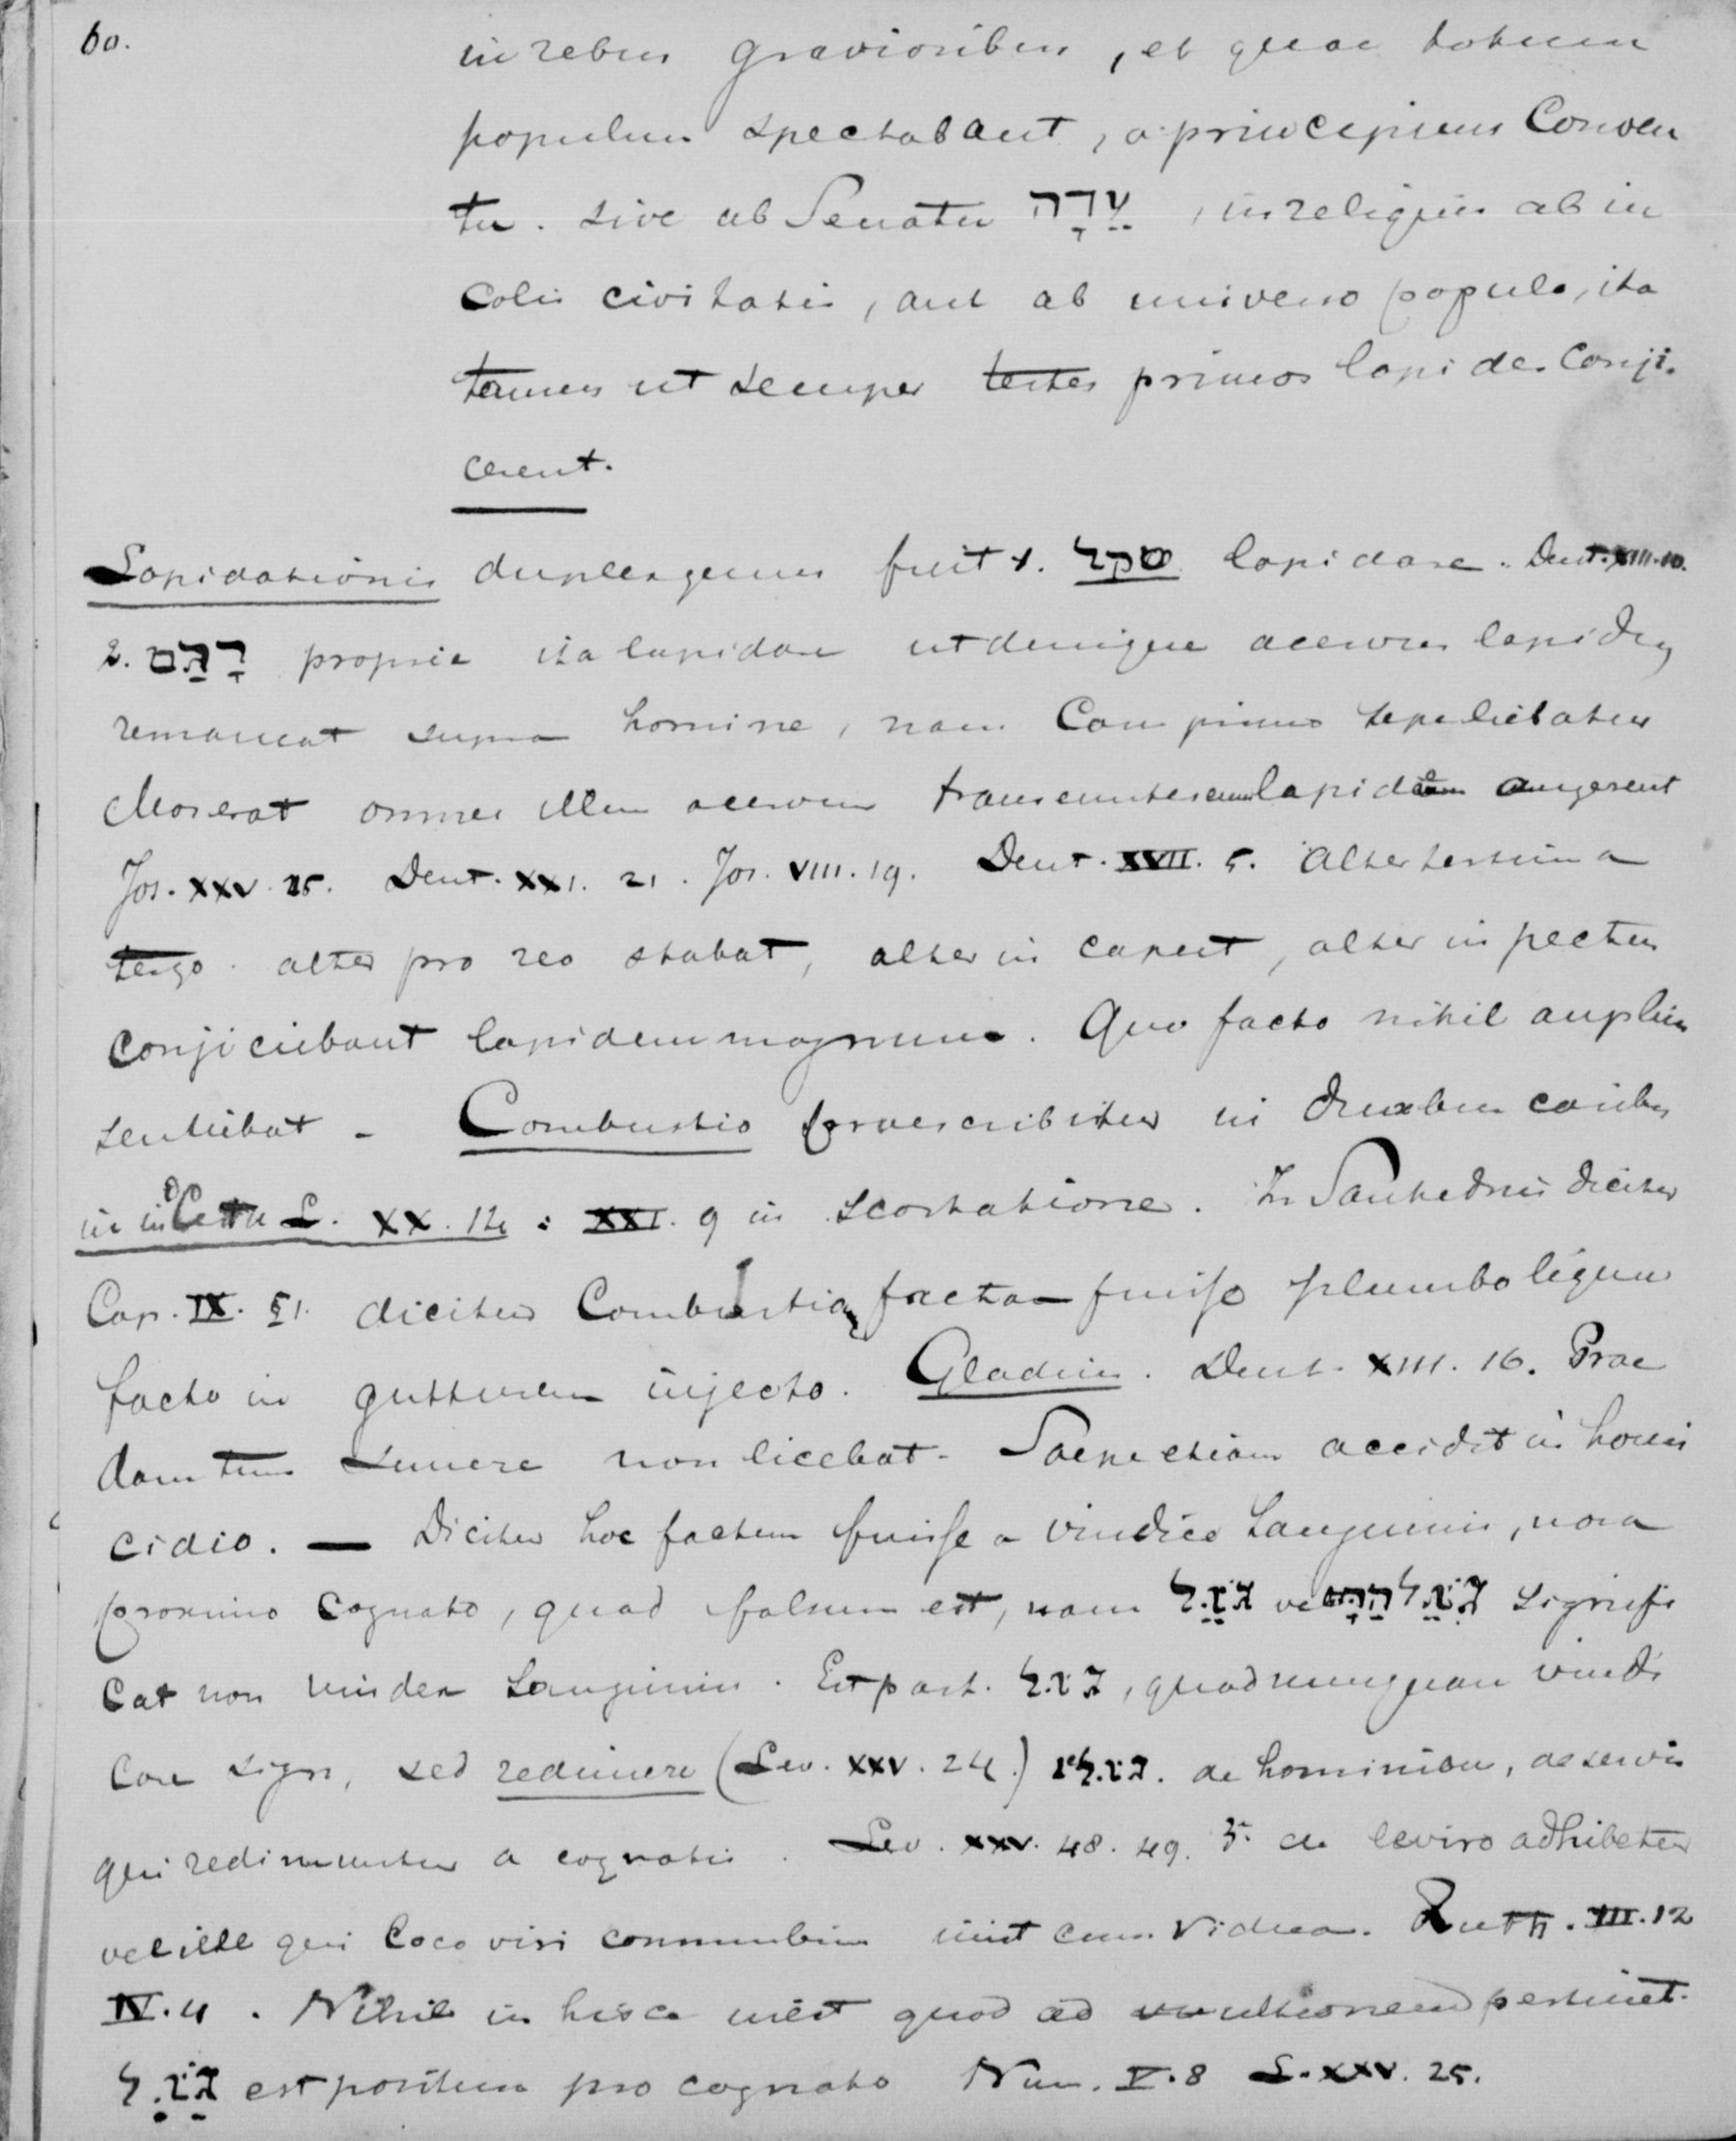 60.
in rebus gravioribus, et quae totum
populum spectabant, a principium Conven
tu. sive ab Senatu עֵדָה, in reliquis ab in
colis civitatis, aut ab universo populo, ita
tamen ut semper testes primos lapides Conji-
cerent.
Lapidationis duplex genus fuit 1. סקל lapidare. Deut. XIII. 10.
2. רָגַם proprie ita lapidare ut denique acervus lapideus
remaneat supra homine, nam Cum primus sepeliebatur
Mos erat omnes illum acervum transeuntes cum lapidem augerent
Jos. XXV. 25. Deut. XXI. 21. Jos. VIII. 19. Deut. XVII. 5. Alter testium a
tergo. alter pro reo stabat, alter in caput, alter in pectus
conjiciebant lapidem magnum. Quo facto nihil amplius
sentiebat - Combustio praescribitur in duabus casibus
in incestu L. XX. 14 : XXI. 9 in scortatione. In Sanhedrin dicitur
Cap. IX. §1. dicitur Combustio facta fuisse plumbo lique
facto in gutturem injecto. Gladius. Deut. XIII. 16. Prae
dam tum sumere non licebat - Saepe etiam accidit in homi
cidio. — Dicitur hoc factum fuisse a vindice sanguinis, non a
proximo Cognato, quod falsum est, nam גֹאֵל vel גֹאֵל הַדָּם signifi
cat non vindex Sanguinis. Est part. גאל, quod nunquam vindi
care sign, sed redimere (Lev. XXV. 24.) de hominibus, de servis
qui redimuntur a cognatis. Lev. XXV. 48. 49. 3. de leviro adhibetur
vel ille qui loco viri connubium init cum Vidua. Ruth. III. 12
IV. 4. Nihil in hisce inest quod ad ultionem pertinet.
גֹאֵל est positum pro cognato Num. V. 8 L. XXV. 25.